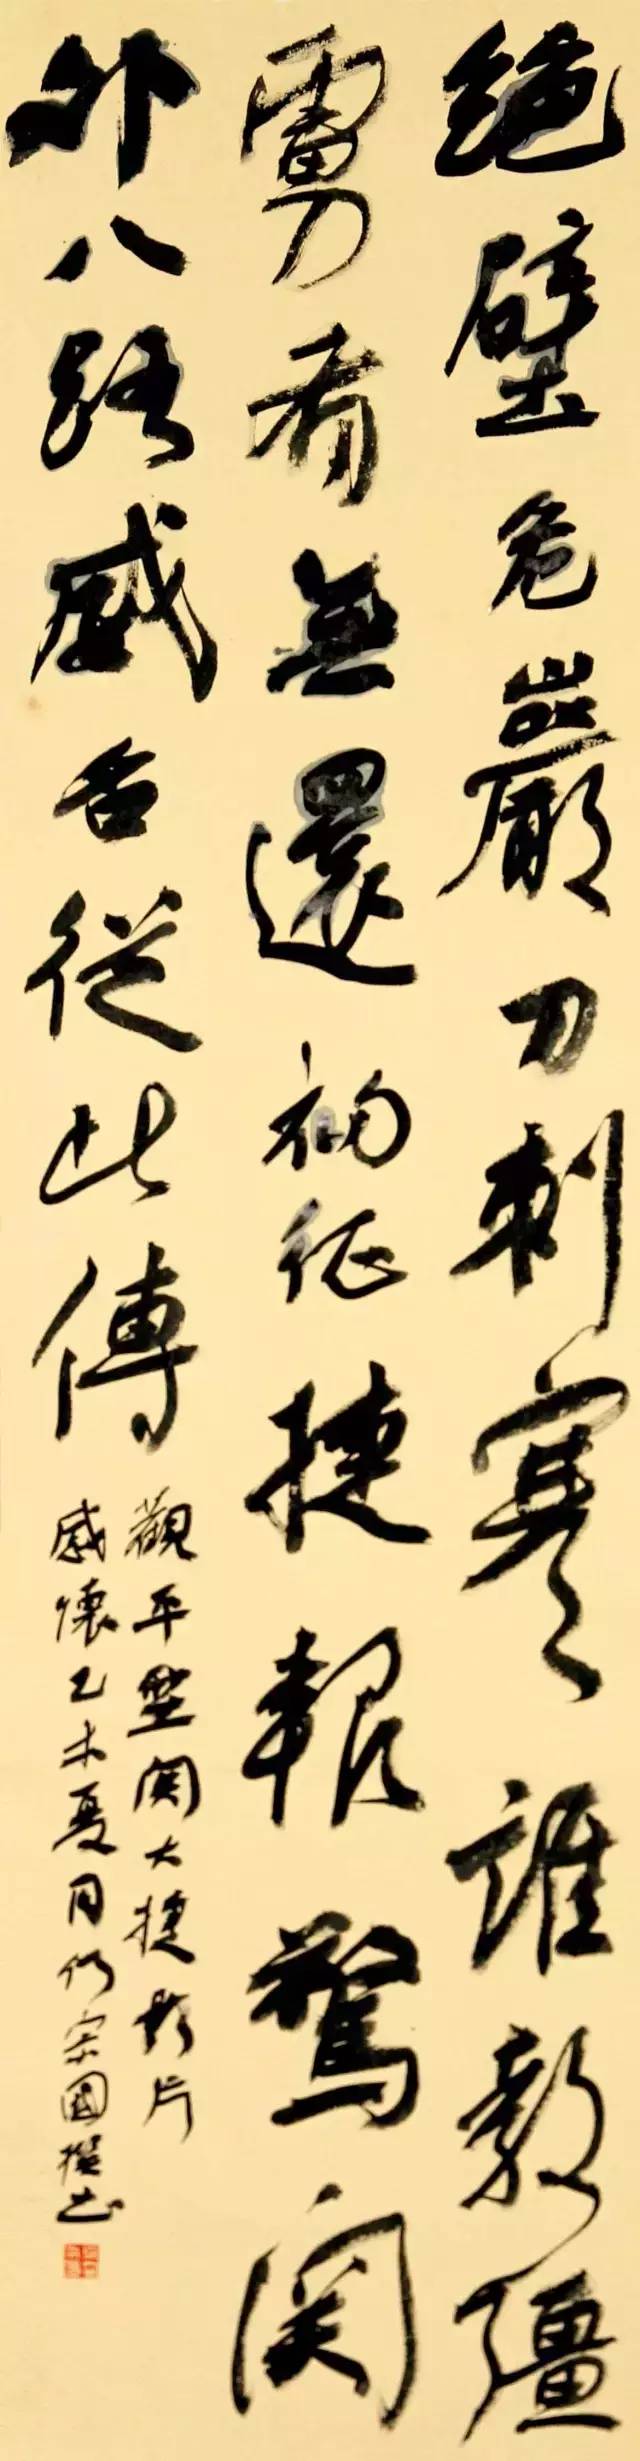 絕壁危巖刀刺寒誰教彊
虜有無還初征捷報驚関
外八路威名從此傳
觀平型関大捷影片
感懷乙未夏月宗國撰书